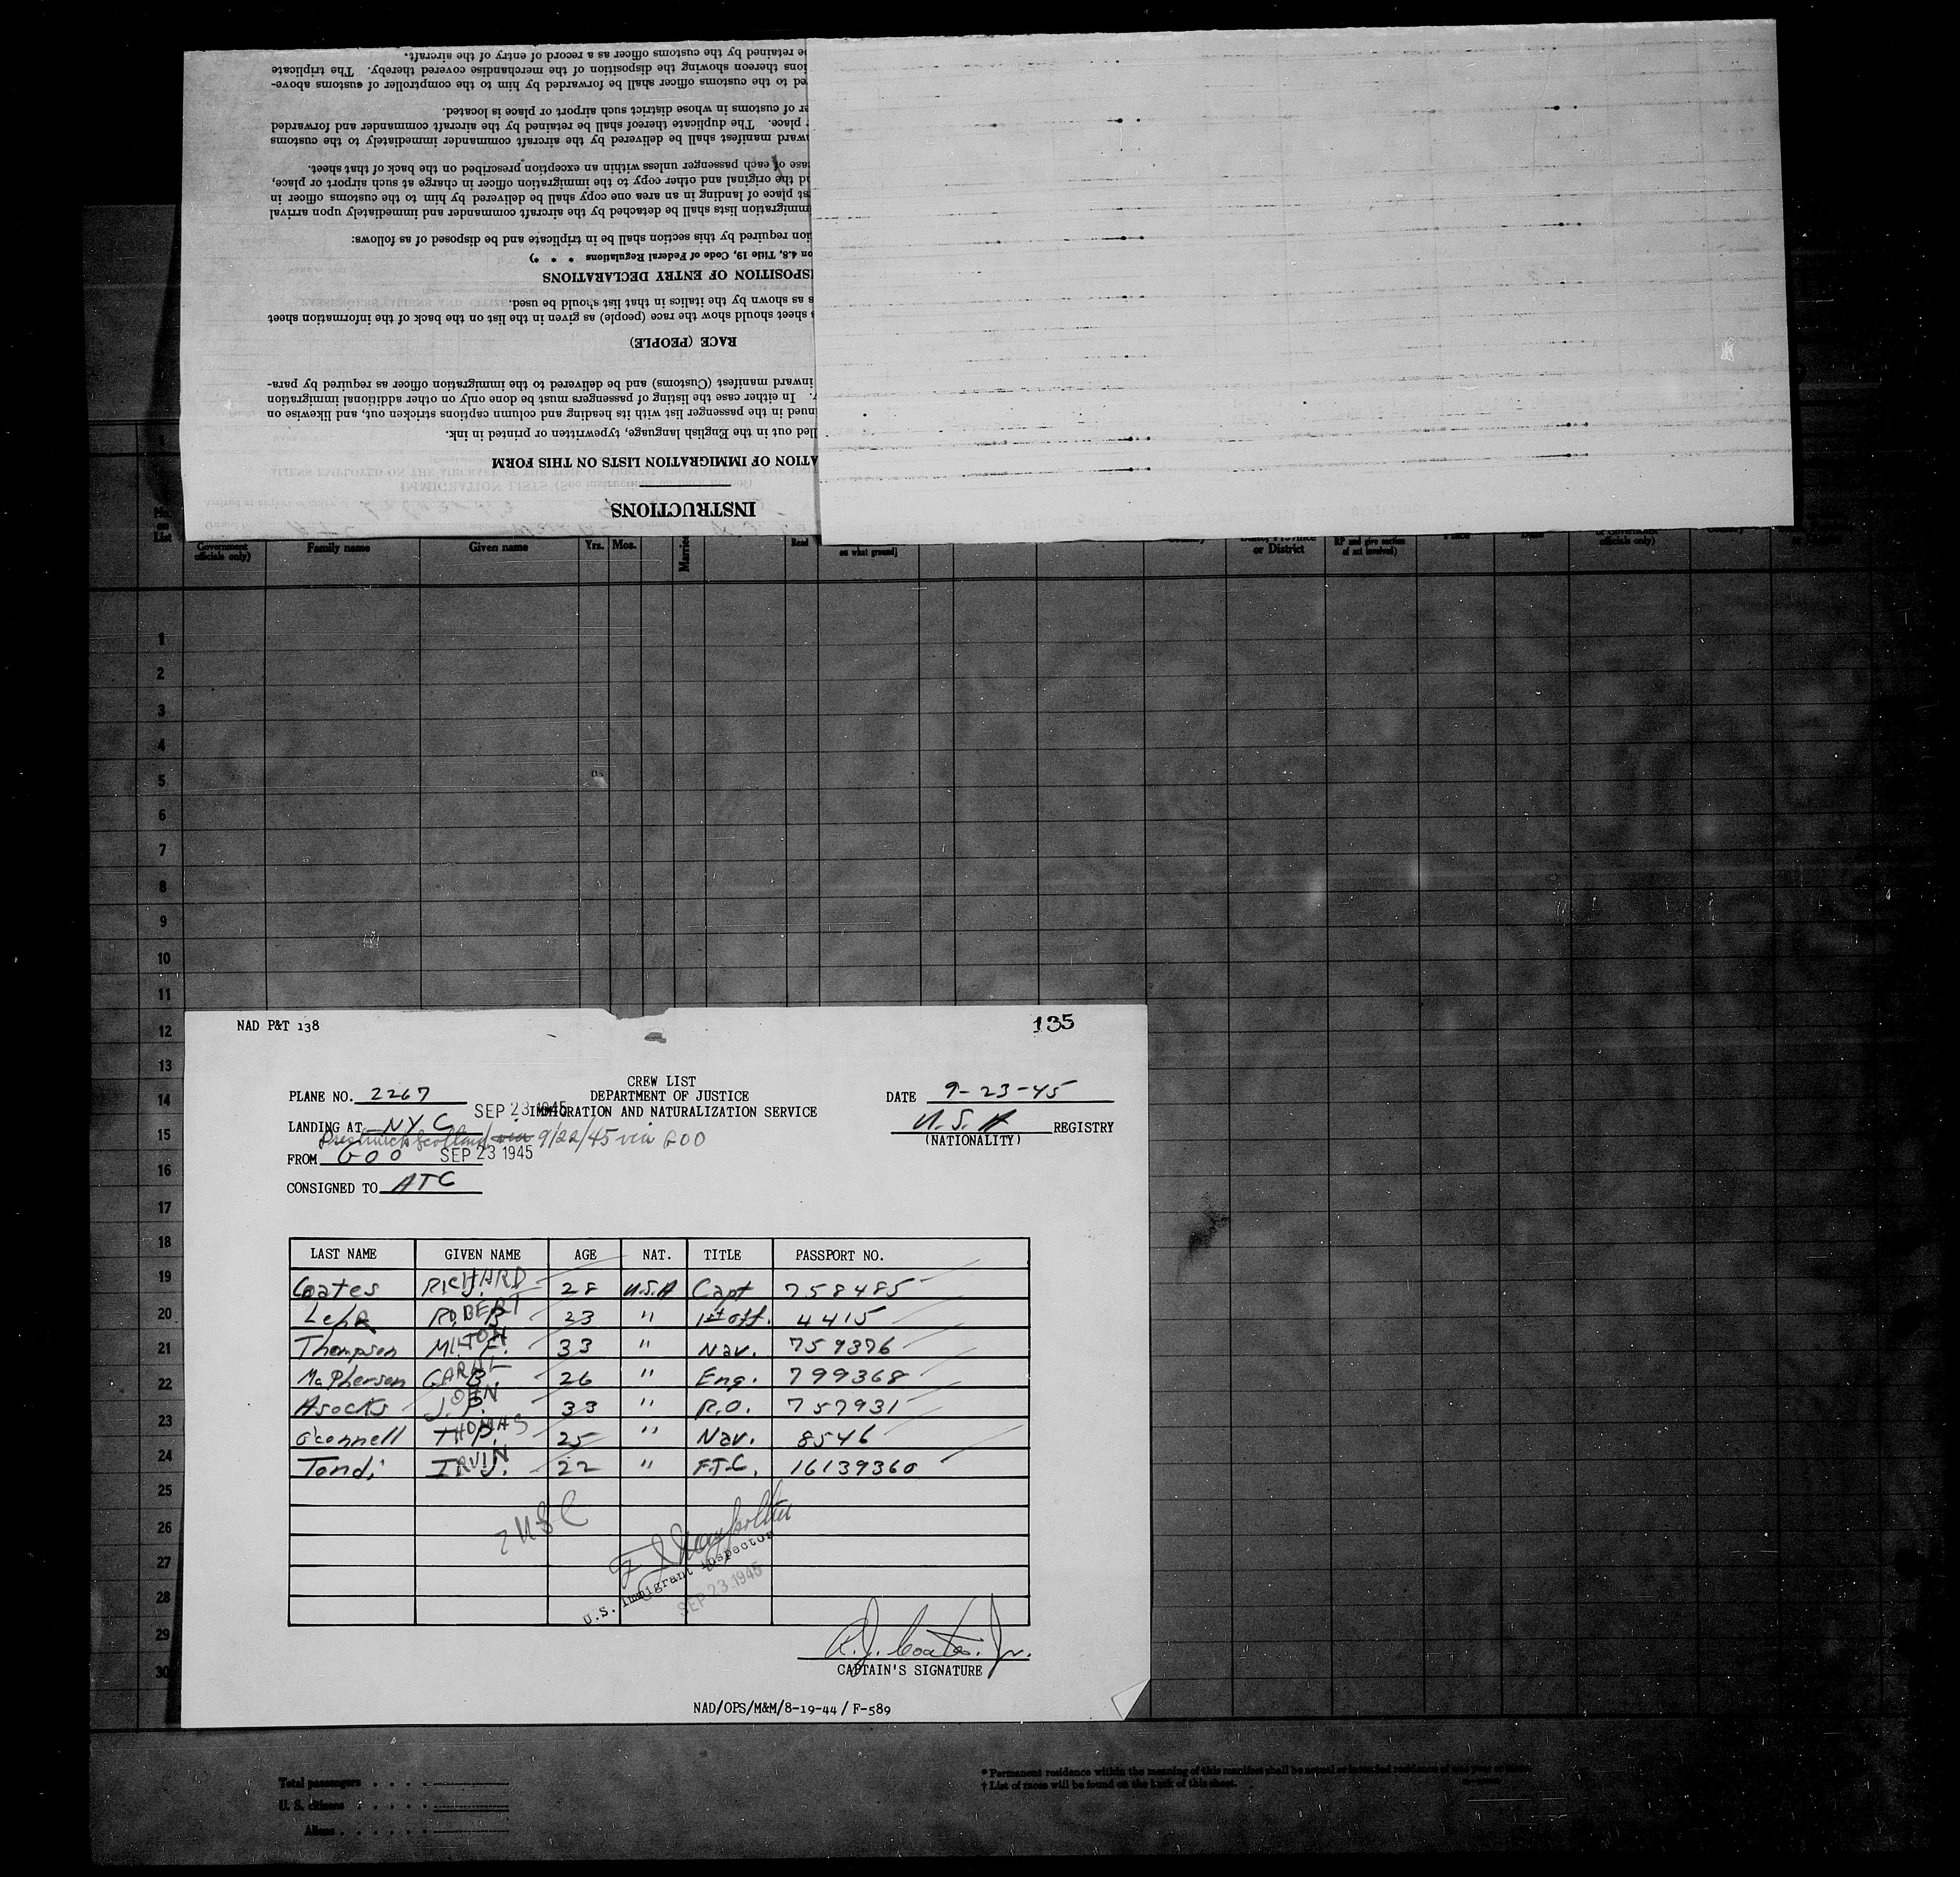 INSTRUCTIONS
ATION OF IMMIGRATION LISTS ON THIS FORM
lled out in the English language, typewritten or printed in ink.
nued in the passenger list with its heading and column captions stricken out, and likewise on
. In either case the listing of passengers must be done only on other additional immigration
inward manifest (Customs) and be delivered to the immigration officer as required by para-
RACE (PEOPLE)
s sheet should show the race (people) as given in the list on the back of the information sheet
s as shown by the italics in that list should be used.
SPOSITION OF ENTRY DECLARATIONS
on 4.8, Title 19, Code of Federal Regulations * * *)
ion required by this section shall be in triplicate and be disposed of as follows:
mmigration lists shall be detached by the aircraft commander and immediately upon arrival
st place of landing in an area one copy shall be delivered by him to the customs officer in
d the original and other copy to the immigration officer in charge at such airport or place,
ase of each passenger unless within an exception prescribed on the back of that sheet.
ward manifest shall be delivered by the aircraft commander immediately to the customs
place. The duplicate thereof shall be retained by the aircraft commander and forwarded
er of customs in whose district such airport or place is located.
ed to the customs officer shall be forwarded by him to the comptroller of customs above-
ions thereon showing the disposition of the merchandise covered thereby. The triplicate
be retained by the customs officer as a record of entry of the aircraft.
No. on List
Government officials only)
Family name
Given name
Yrs. Mos.
Married
Read
on what ground]
or District
RP and give section of act involved)
Place
Date
officials only)
1
2
3
4
5
6
7
8
9
10
11
12
13
14
15
16
17
18
19
20
21
22
23
24
25
26
27
28
29
30
NAD P&T 138
135
CREW LIST
PLANE NO. 2267
DEPARTMENT OF JUSTICE
DATE 9-23-45
SEP 23 1945 IMMIGRATION AND NATURALIZATION SERVICE
LANDING AT NYC
U.S.A REGISTRY
(NATIONALITY)
Prestwick Scotland via 9/22/45 via GOO
FROM GOO SEP 23 1945
CONSIGNED TO ATC
LAST NAME GIVEN NAME AGE NAT. TITLE PASSPORT NO.
Coates RICHARD J. 28 U.S.A Capt 758485
ROBERT B 23 " 1st off. 4415
Thompson MILTON 33 " Nav. 759376
McPherson B. 26 " Eng. 799368
Asocks JOHN P. 33 " R.O. 757931
O'connell THOMAS P. 25 " Nav. 8546
Tondi IRVIN J. 22 " F.T.C. 16139360
7 USC
U.S. Immigrant Inspector
SEP 23 1945
R.J. Coates Jr.
CAPTAIN'S SIGNATURE
NAD/OPS/M&M/8-19-44 / F-589
Total passengers
U. S. citizens
Aliens
* Permanent residence within the meaning of this manifest shall be actual or intended residence of one year or more.
† List of races will be found on the back of this sheet.